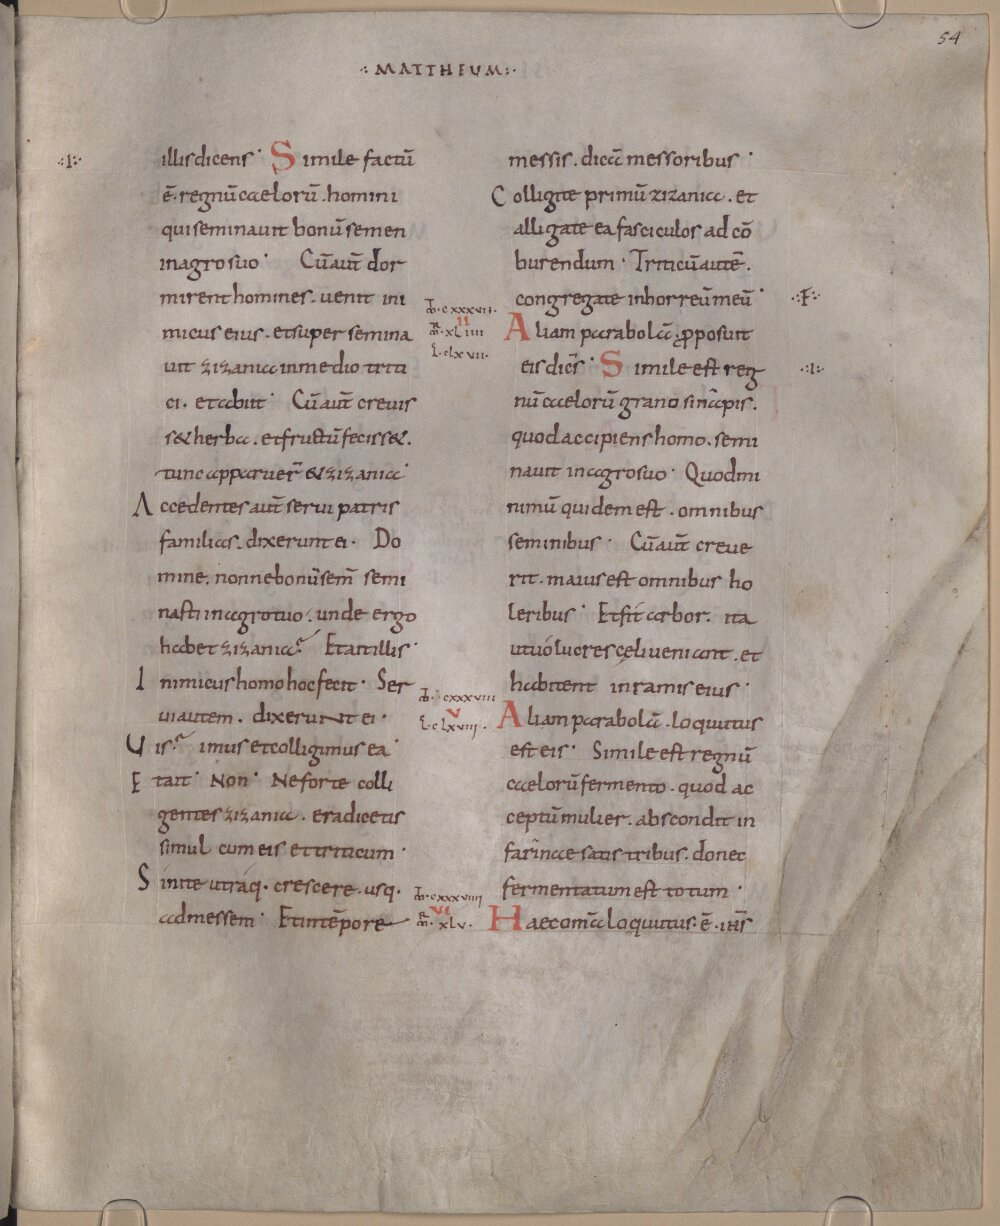 54
·:MATTHEUM:·
·:I:·
illis dicens· Simile factū
ē· regnū caelorū· homini
qui seminavit bonū semen
in agro suo· Cū aut̄ dor
mirent homines· venit ini
micus eius· et super semina
vit zizania in medio triti
ci· et abiit· Cū aut̄ crevis
s& herba· et fructū feciss&·
tunc apparuer̄ & zizania·
Accedentes aut̄ servi patris
familias· dixerunt ei· Do
mine· nonne bonū sem̄ semi
nasti in agro tuo· unde ergo
habet zizania? Et ait illis·
Inimicus homo hoc fecit· Ser
vi autem· dixerunt ei·
Vis? imus et colligimus ea·
Et ait· Non· Ne forte colli
gentes zizania· eradicetis
simul cum eis et triticum·
Sinite utraq· crescere· usq·
ad messem· Et in tēpore
m̄· cxxxvii·
II
m̄· xliiii
l· clxvii·
m̄· cxxxviii
V
l· clxviii·
m̄· cxxxviiii
VI
m̄· xlv·
messis· dicā messoribus·
Colligite primū zizania· et
alligate ea fasciculos ad cō
burendum· Triticū autē·
congregate in horreū meū·
·:F:·
Aliam parabolā pposuit
eis dic̄s· Simile est reg
·:I:·
nū caelorū grano sināpis·
quod accipiens homo· semi
navit in agro suo· Quod mi
nimū quidem est· omnibus
seminibus· Cū aut̄ creve
rit· maius est omnibus ho
leribus· Et fit arbor· ita
ut volucres cęli veniant· et
habitent in ramis eius·
Aliam parabolā· loquutus
est eis· Simile est regnū
caelorū fermento· quod ac
ceptū mulier· abscondit in
farinae satis tribus· donec
fermentatum est totum·
Haec om̄a loquutus· ē· ih̄s